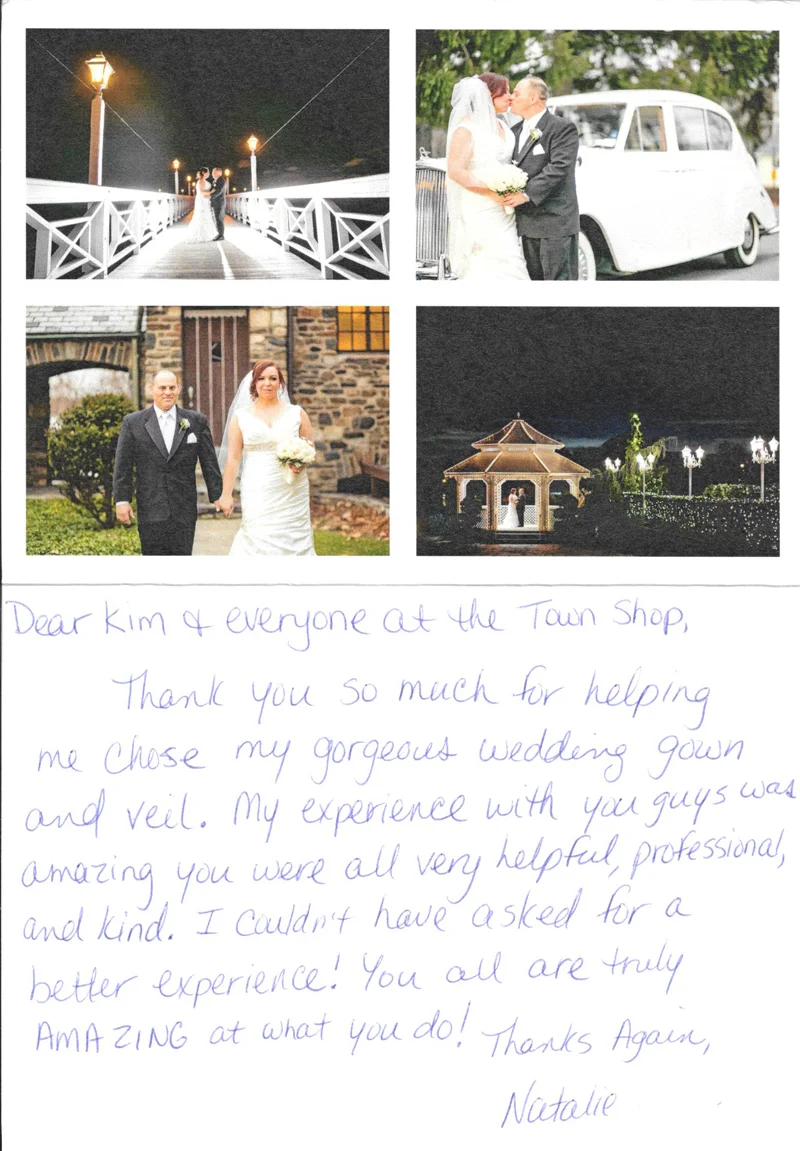 Dear Kim & everyone at the Town Shop,
Thank you so much for helping
me chose my gorgeous wedding gown
and veil. My experience with you guys was
amazing you were all very helpful, professional,
and kind. I couldn't have asked for a
better experience! You all are truly
AMAZING at what you do! Thanks Again,
Natalie